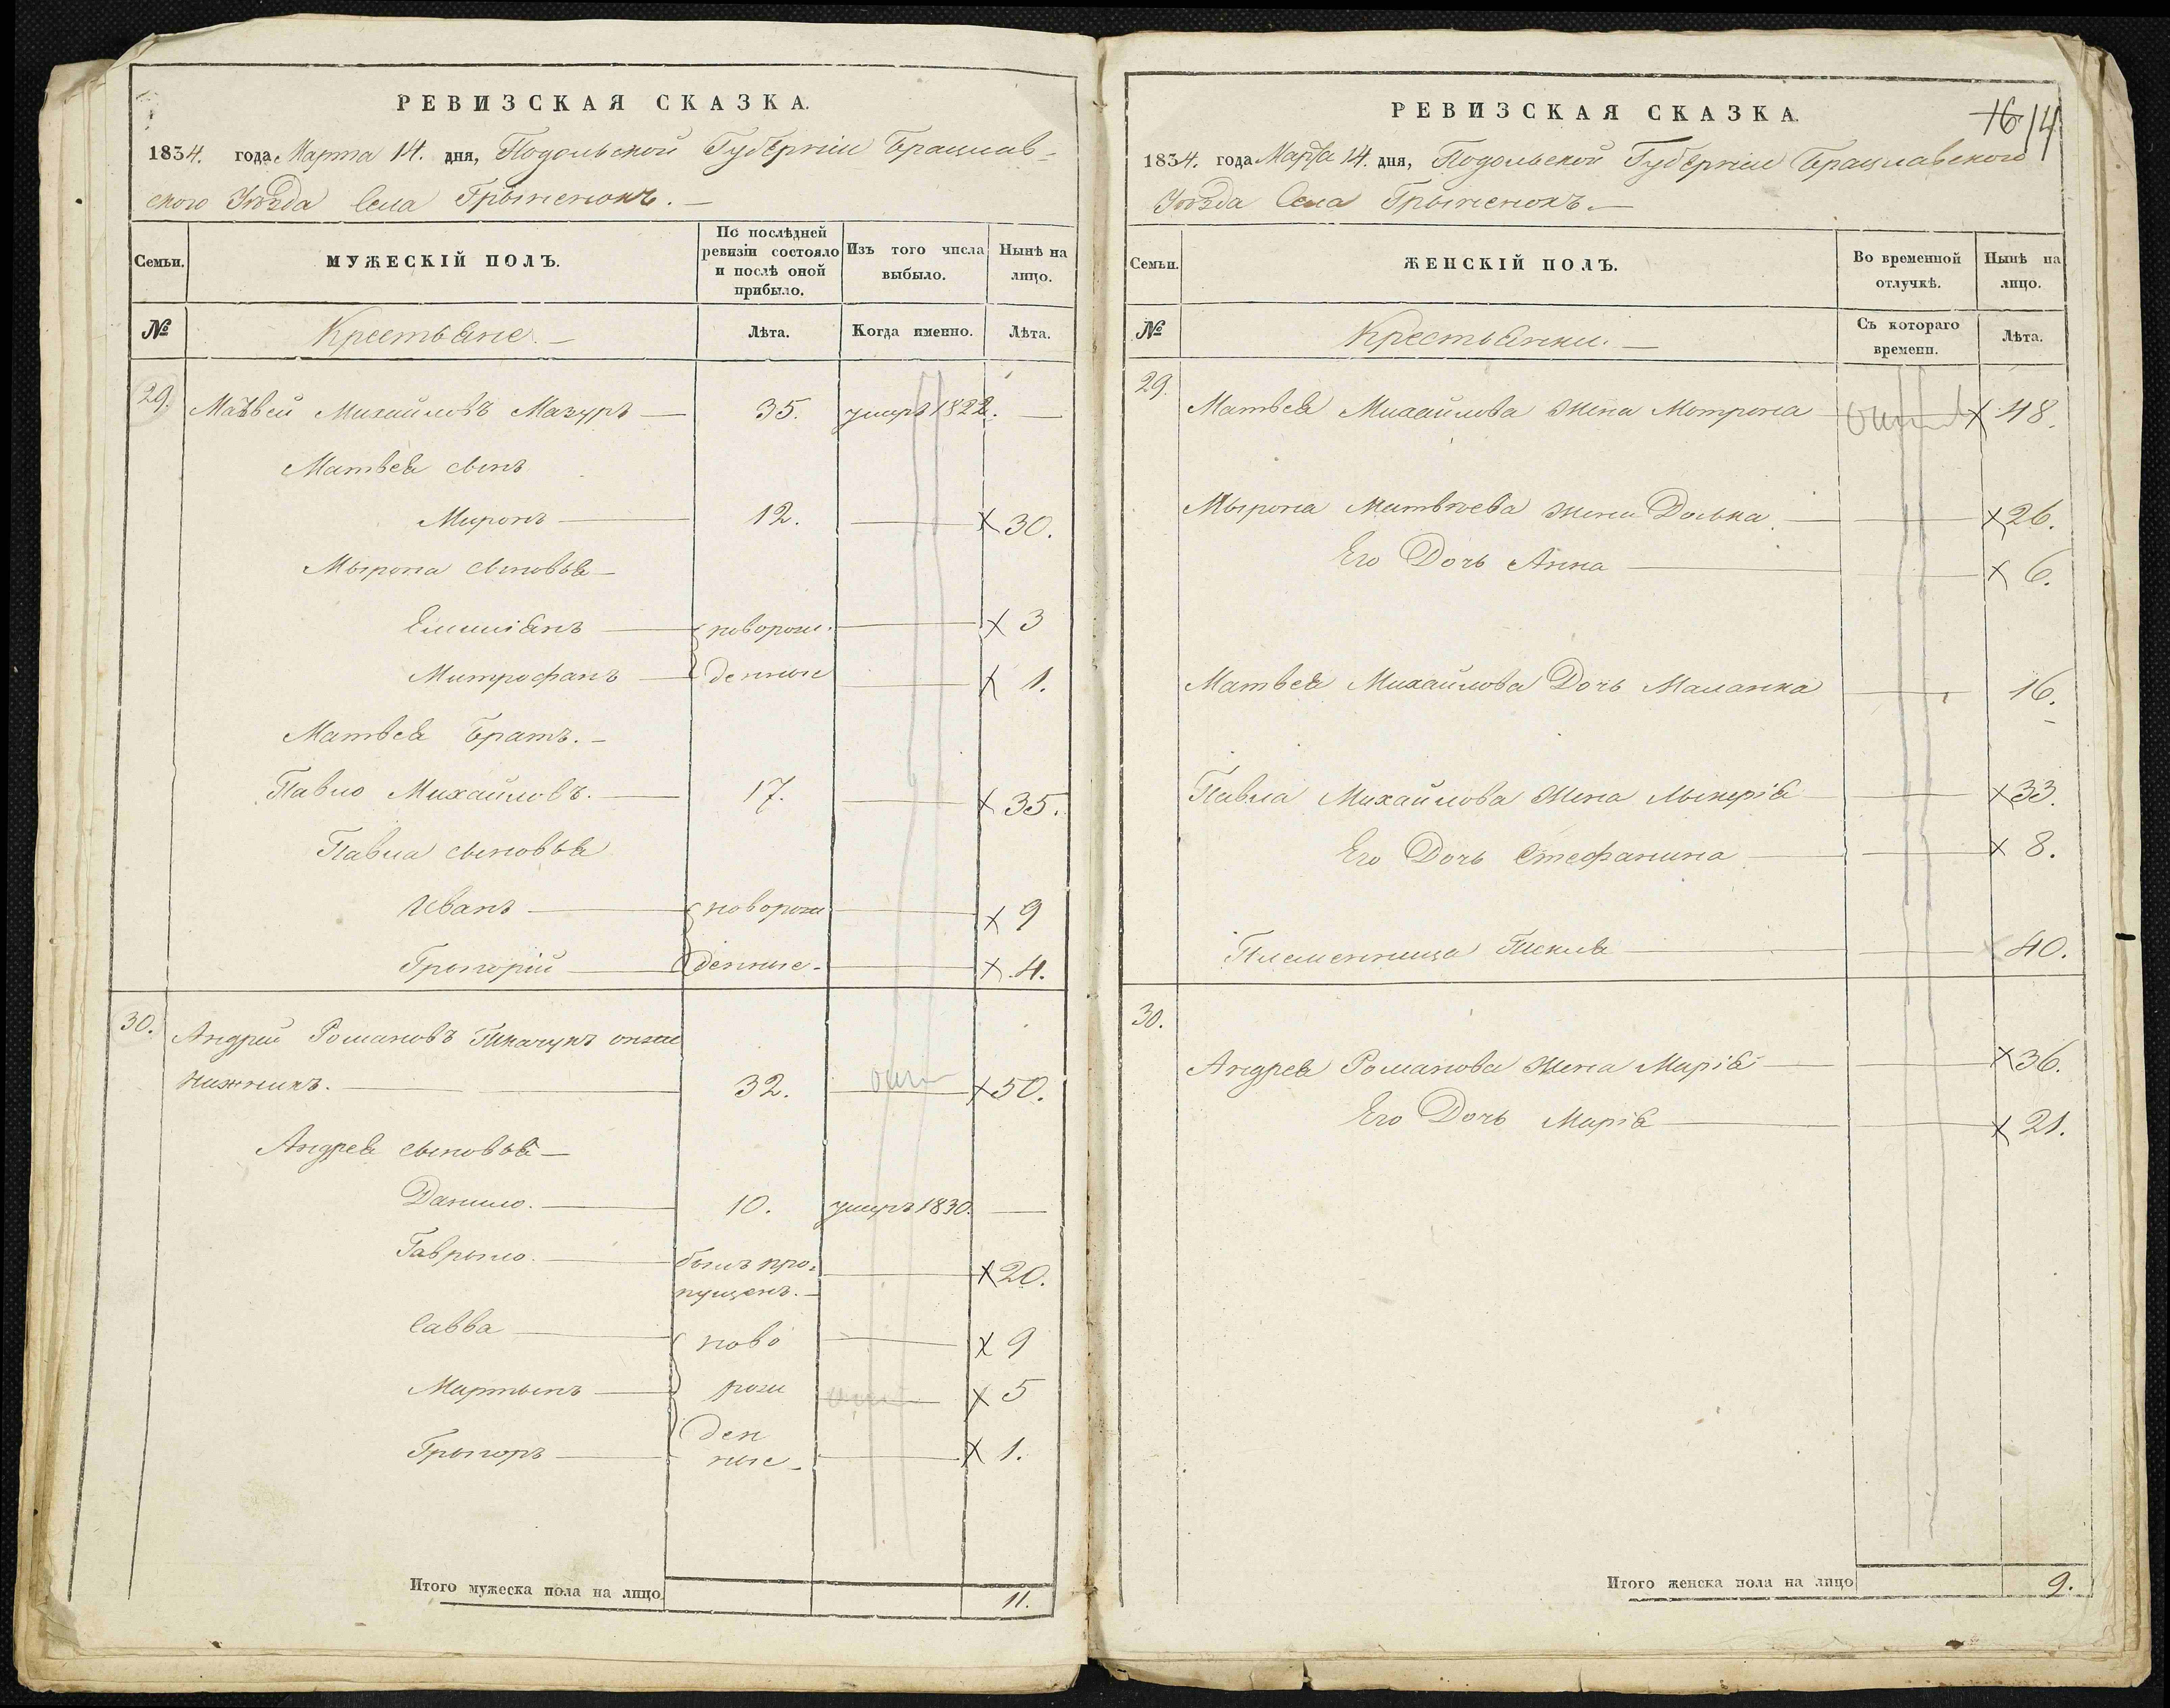 РЕВИЗСКАЯ СКАЗКА.
1834. года Марта 14. дня, Подольской Губерніи Брацлав-
ского Уѣзда Села Грыненокъ. —
Семьи.
МУЖЕСКІЙ ПОЛЪ.
По послѣдней ревизіи состояло и послѣ оной прибыло.
Изъ того числа выбыло.
Нынѣ на лицо.
№
Крестьяне. —
Лѣта.
Когда именно.
Лѣта.
29. Матвей Михайловъ Мазуръ — 35. умеръ 1822. —
Матвея сынъ
Миронъ — 12. — х 30.
Мырона сыновья —
Емиліянъ — новорож- — х 3
Митрофанъ — денные — х 1.
Матвея Братъ. —
Павло Михайловъ. — 17. — х 35.
Павла сыновья
Иванъ — новорож — х 9
Грыгорій — денные — х 4.
30. Андрей Романовъ Ткачукъ онже
Нижникъ. — 32. — х 50.
Андрея сыновья —
Данило. — 10. умеръ 1830. —
Гаврыло. — былъ про- — х 20.
пущенъ. —
Савва — ново — х 9
Мартынъ — рож — х 5
Грыгоръ — ден — х 1.
ные —
Итого мужеска пола на лицо 11.
РЕВИЗСКАЯ СКАЗКА.
16 14
1834. года Марта 14. дня, Подольской Губерніи Брацлавского
Уѣзда Села Грыненокъ. —
Семьи.
ЖЕНСКІЙ ПОЛЪ.
Во временной отлучкѣ.
Нынѣ на лицо.
№
Крестьянки. —
Съ котораго времени.
Лѣта.
29. Матвея Михайлова жена Мотрона — х 48.
Мырона Матвѣева жена Домка — х 26.
Его Дочь Анна — х 6.
Матвея Михайлова Дочь Маланка — 16.
Павла Михайлова жена Лыкерія — х 33.
Его Дочь Стефанина — х 8.
Племенница Текля — 40.
30.
Андрея Романова жена Марія — х 36.
Его Дочь Марія — х 21.
Итого женска пола на лицо 9.